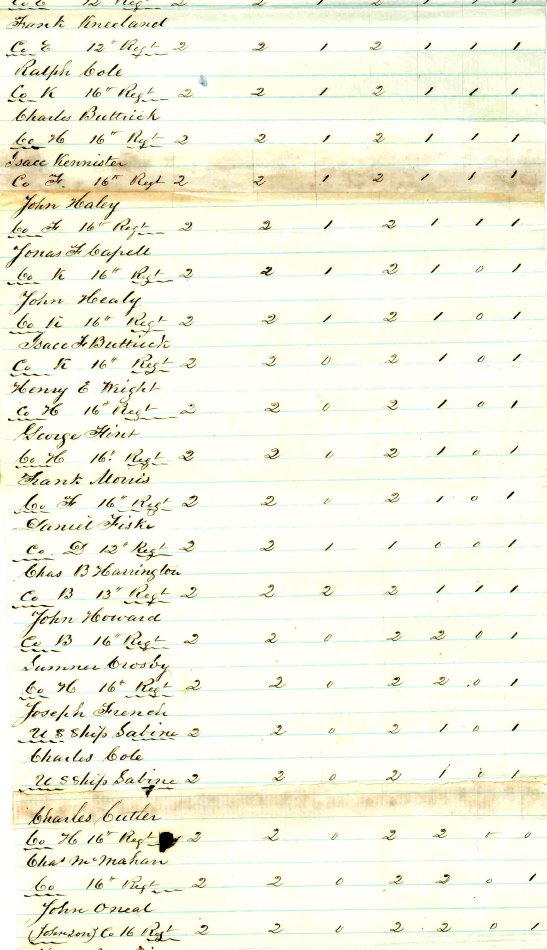 Co E 12" Regt 2 2 1 2 1 1 1
Frank Kneeland
Co E 12" Regt 2 2 1 2 1 1 1
Ralph Cole
Co K 16" Regt 2 2 1 2 1 1 1
Charles Buttrick
Co H 16" Regt 2 2 1 2 1 1 1
Isacc Kennister
Co F. 16" Regt 2 2 1 2 1 1 1
John Haley
Co F 16" Regt 2 2 1 2 1 1 1
Jonas F Capell
Co K 16" Regt 2 2 1 2 1 0 1
John Healy
Co K 16" Regt 2 2 1 2 1 0 1
Isacc F Buttrick
Co K 16" Regt 2 2 0 2 1 0 1
Henry E Wright
Co H 16" Regt 2 2 0 2 1 0 1
George Flint
Co H 16" Regt 2 2 0 2 1 0 1
Frank Morris
Co F 16" Regt 2 2 0 2 1 0 1
Daniel Fiske
Co D 12" Regt 2 2 1 1 0 0 1
Chas B Harrington
Co B 13" Regt 2 2 2 2 1 1 1
John Howard
Co B 16" Regt 2 2 0 2 2 0 1
Sumner Crosby
Co H 16" Regt 2 2 0 2 2 0 1
Joseph French
U S Ship Sabine 2 2 0 2 1 0 1
Charles Cole
U S Ship Sabine 2 2 0 2 1 0 1
Charles Cutler
Co H 16" Regt 2 2 0 2 2 0 0
Chas McMahan
Co 16" Regt 2 2 0 2 2 0 1
John Oneal
(Johnson) Co 16 Regt 2 2 0 2 2 0 1